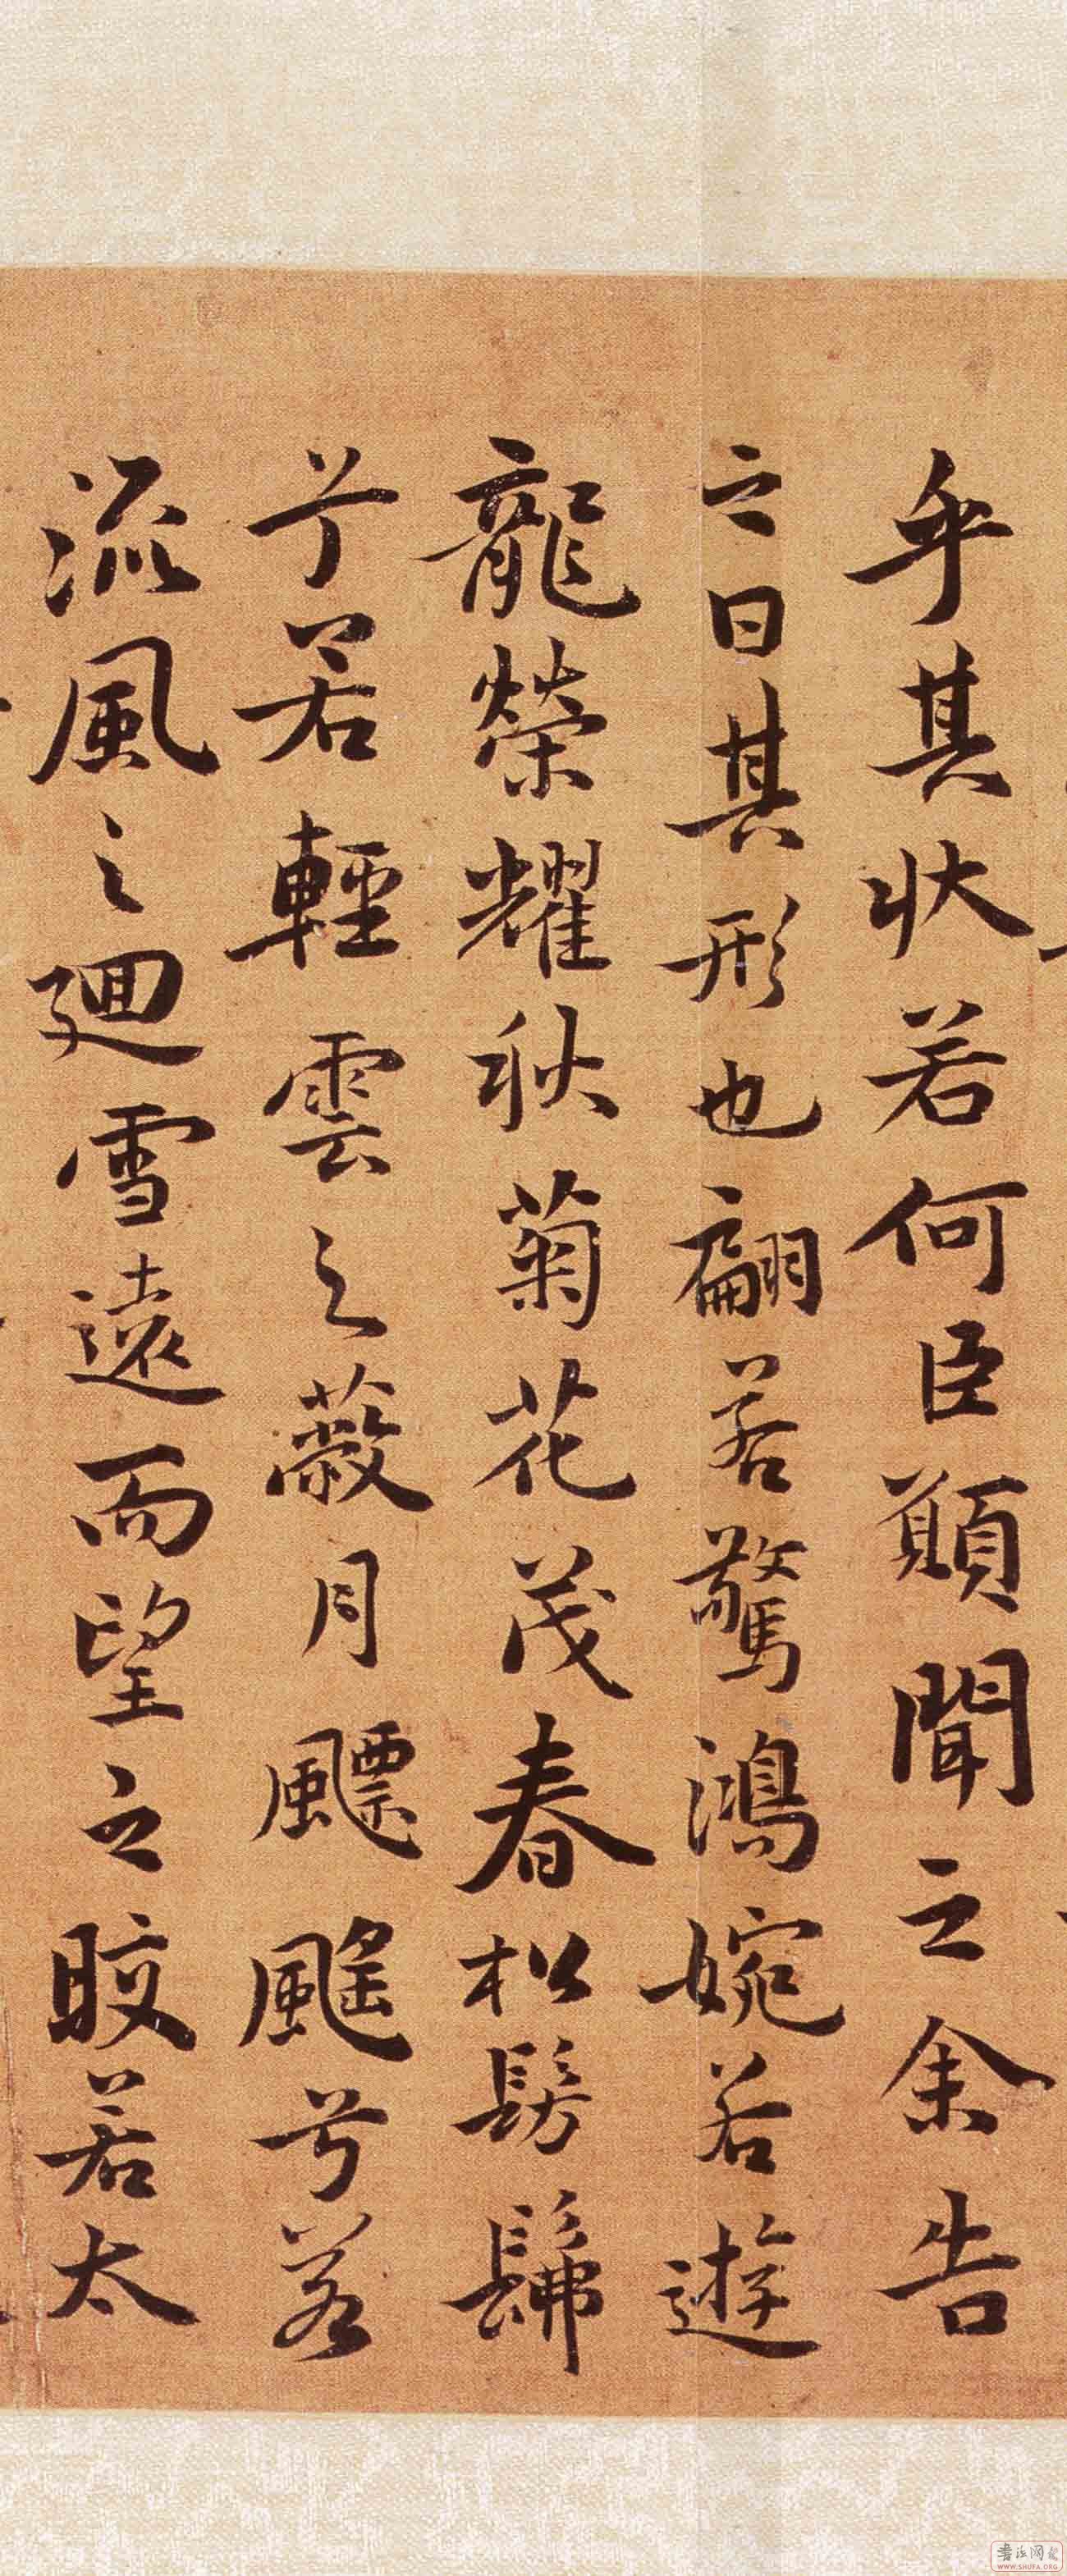 乎其狀若何臣願聞之余告
之曰其形也翩若驚鴻婉若遊
龍榮耀秋菊花茂春松髣髴
兮若輕雲之蔽月飄颻兮若
流風之廻雪遠而望之皎若太
書法网
WWW.SHUFA.ORG